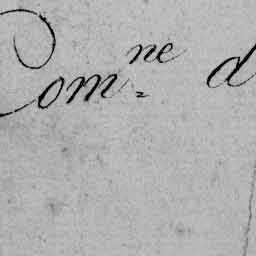 Com.ne d